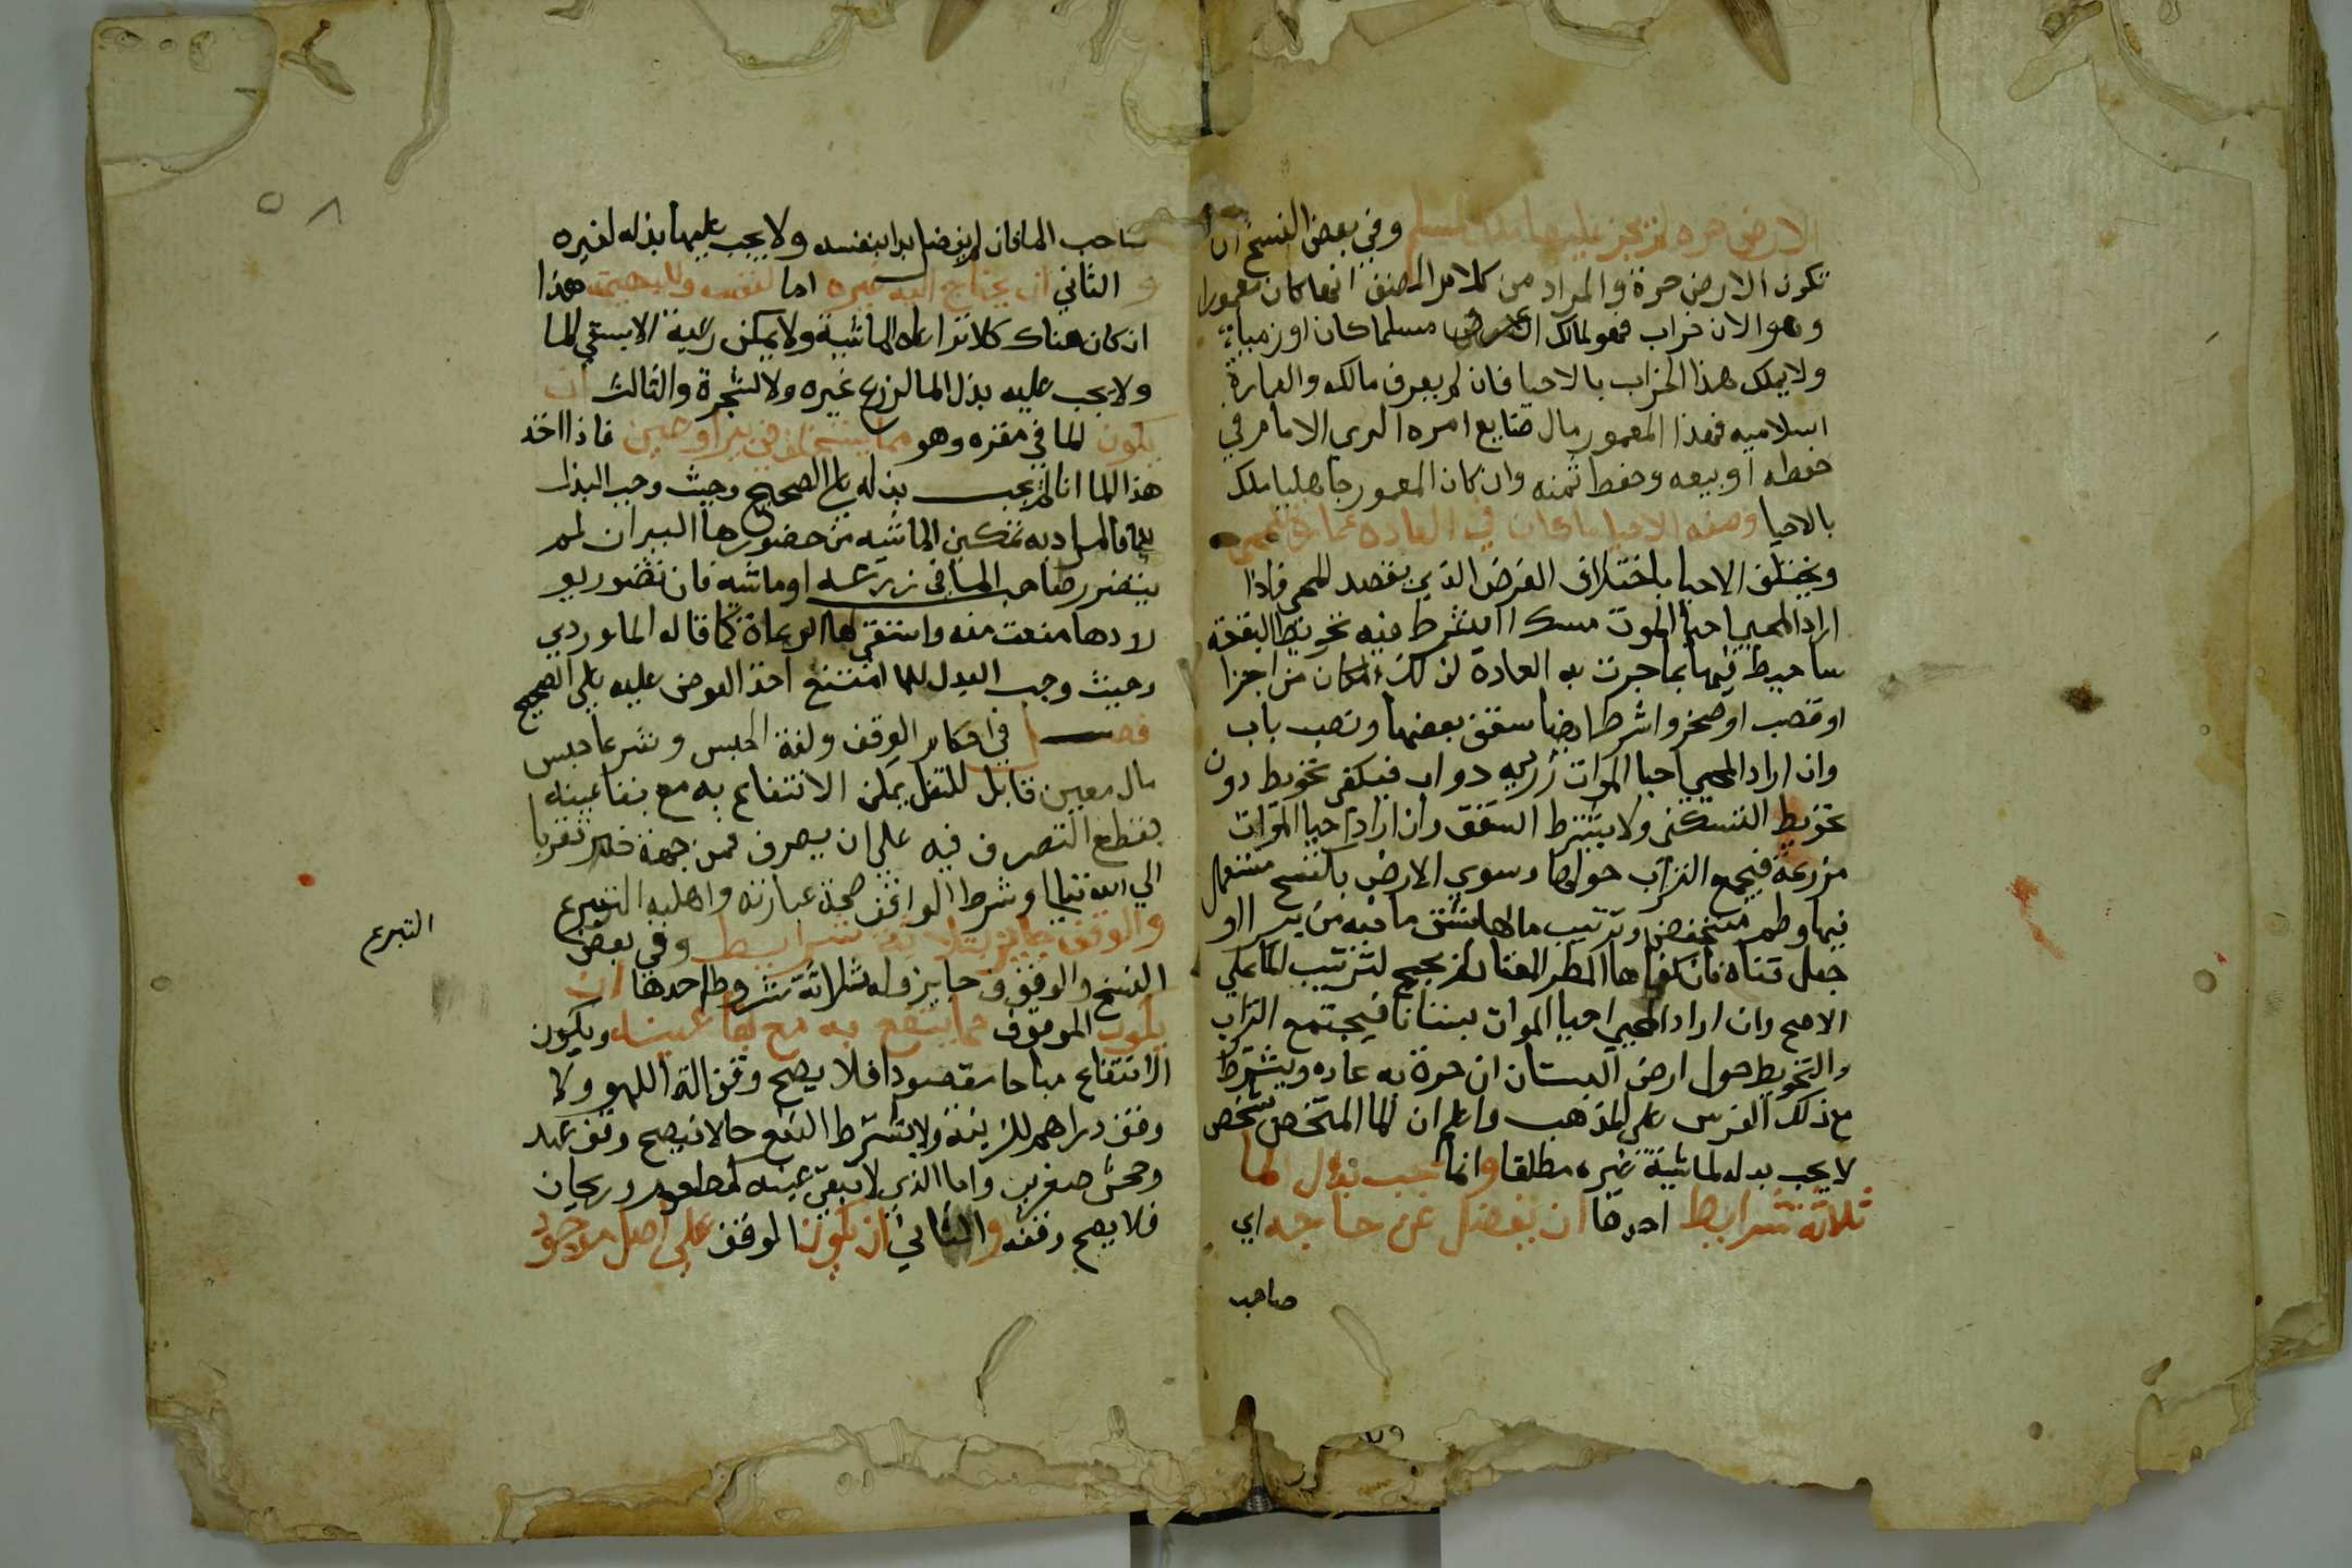 الارض حره لم يجز عليها ملك لمسلم وفي بعض النسخ ان
تكون الارض حرة والمراد من كلام المصنف انما كان معمورا
وهو الان خراب فهو لمالكه ان عرف مسلما كان او ذميا
ولا يملك هذا الخراب بالاحيا فان لم يعرف مالكه والعمارة
اسلاميه فهذا المعمور مال ضايع امره لراي الامام في
حفظه او بيعه وحفظ ثمنه وان كان المعمور جاهليا ملك
بالاحيا وصفه الاحيا ما كان في العاده عمارة للمحيي
ويختلف الاحيا باختلاف الغرض الذي يقصد المحي فاذا
اراد المحيي احيا الموت مسكا اشترط فيه تحويط البقعة
ساحيط فيها بما جرت به العادة لذلك المكان من اجرا
او قصب او حجر واشرط ايضا سقف بعضها ونصب باب
وان اراد المحيي احيا الموات زريبه دواب فيكفي تحويط دون
تحويط السكنى ولا يشترط السقف وان اراد احيا الموات
مزرعة فيجمع التراب حولها وسوي الارض بكسح مستعل
فيها وطم منخفض وترتيب ما لها بشق ساقيه من بير او
حفل قناه فان كفاها المطر المعتاد لم يحتج لترتيب الما علي
الاصح وان اراد المحيي احيا الموات بستانا فيجتمع التراب
والتحويط حول ارض البستان ان جرة به عاده ويشترط
مع ذلك الغرس علي المذهب واعلم ان الما المختص بشخص
لا يجب بدله لماشية غيره مطلقا وانما يجب بذل الما
ثلاثة شرايط احدها ان يفضل عن حاجه اي
صاحب
٥٨
صاحب الما فان لم يفضل بدا بنفسه ولا يجب عليها بذله لغيره
و الثاني ان يحتاج اليه غيره اما لنفسه ولبهيمته هذا
ان كان هناك كلا ترعاه الماشية ولا يمكن رعيه الا بسقي الما
ولا يجب عليه بذل الما لزرع غيره ولا لشجرة والثالث ان
يكون الما في مقره وهو مما يستخلف في بير او عين فاذا اخذ
هذا الما انا لم يجب بذله علي الصحيح وحيث وجب البذل
للما فالمراد به تمكين الماشيه من حضورها البير ان لم
يتضرر صاحب الما في زرعه او ماشيه فان تضرر بو
لادها منعت منه واستقى لها الرعاة كما قاله الماوردي
وحيث وجب البدل للما امتنع اخذ العوض عليه علي الصحيح
فصل في احكام الوقف ولغة الحبس وشرعا حبس
مال معين قابل للنقل يمكن الانتفاع به مع بقا عينه
بقطع التصرف فيه علي ان يصرف في جهة خير تقربا
الي الله تعالي وشرط الواقف صحة عبارته واهلية التبرع
التبرع
والوقف جايز بثلاثة شرايط وفي بعض
النسخ والوقف جايز وله ثلاثة شروط احدها ان
يكون الموقوف مما ينتفع به مع بقا عينه ويكون
الانتفاع مباحا مقصودا فلا يصح وقف الة اللهو ولا
وقف دراهم للزينة ولا يشترط النفع حالا فيصح وقف عبد
وجحش صغيرين واما الذي لا تبقي عينه كمطعوم وريحان
فلا يصح وقفه والثاني ان يكون الوقف علي اصل موجود